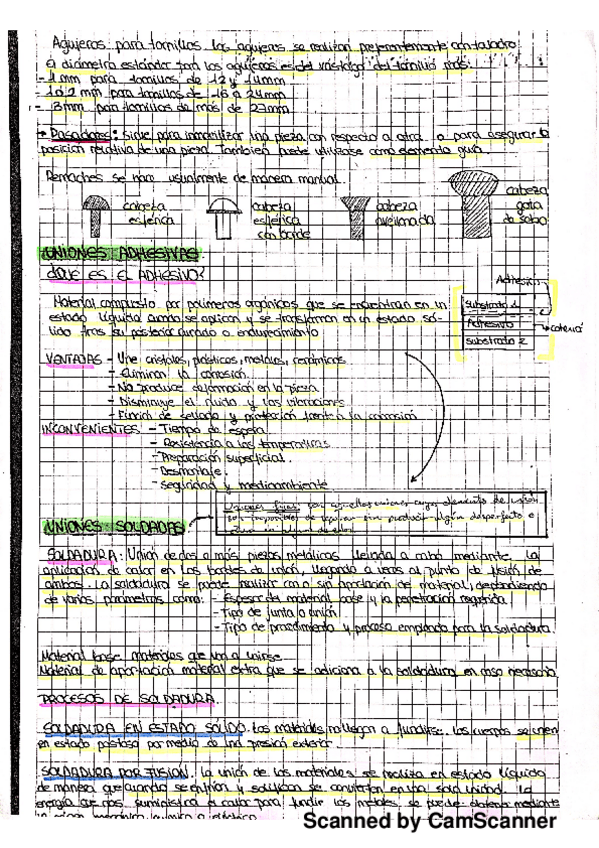 Agujeros para tornillos. Los agujeros se realizan preferentemente con taladro
a diámetro estándar del vástago del tornillo más:
- 1 mm para tornillos de 12 y 14mm
- 1 ó 2 mm para tornillos de 16 a 24mm
- 3mm para tornillos de más de 27mm
Pasadores: Sirve para inmovilizar una pieza con respecto a otra o para asegurar la
posición relativa de una pieza. También puede utilizarse como elemento guía.
Remaches se hace usualmente de manera manual.
cabeza esférica
cabeza esférica con borde
cabeza avellanada
cabeza gota de sebo
UNIONES ADHESIVAS
¿QUE ES EL ADHESIVO?
Material compuesto por polímeros orgánicos que se encuentran en un
estado líquido cuando se aplican y se transforman en un estado só-
lido tras su posterior curado o endurecimiento
Adhesión
substrato 1
Adhesivo
substrato 2
VENTAJAS - Une cristales, plásticos, metales, cerámicas
- Eliminan la corrosión.
- No produce deformación en la pieza
- Disminuye el ruido y las vibraciones
- Función de sellado y protección frente a la corrosión
INCONVENIENTES - Tiempo de espera
- Resistencia a las temperaturas
- Preparación superficial.
- Desmontaje.
- Seguridad y medioambiente
Uniones fijas: son aquellas uniones cuyos elementos de unión
son imposibles de separar sin producir algún desperfecto o
UNIONES SOLDADAS
SOLDADURA: Unión de dos o más piezas metálicas llevada a cabo mediante la
aplicación de calor en los bordes de unión, llegando a veces al punto de fusión de
ambos. La soldadura se puede realizar con o sin aportación de material, dependiendo
de varios parametros como: - Espesor del material base y la penetración requerida
- Tipo de junta o unión
- Tipo de procedimiento y proceso empleado para la soldadura
Material base: materiales que van a unirse
Material de aportación: material extra que se adiciona a la soldadura en caso necesario
PROCESOS DE SOLDADURA
SOLDADURA EN ESTADO SÓLIDO. Los materiales no llegan a fundirse. Los cuerpos se unen
en estado pastoso por medio de una presión exterior.
SOLDADURA POR FUSIÓN. La unión de los materiales se realiza en estado líquido
de manera que cuando se enfrían y solidifican se convierten en una sola unidad. La
energía que nos suministra el calor para fundir los metales se puede obtener mediante
Scanned by CamScanner